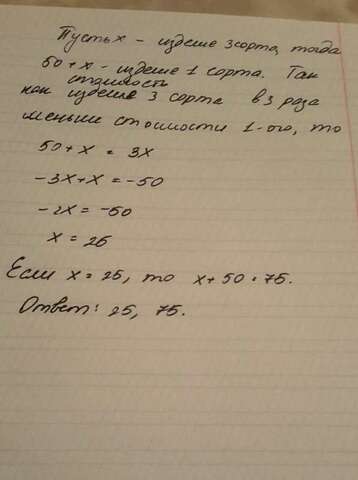 Пусть х - изделие 3 сорта, тогда
50 + х - изделие 1 сорта. Так
стоимость
как изделие 3 сорта в 3 раза
меньше стоимости 1-ого, то
50 + х = 3х
-3х+х = -50
-2х = -50
х = 25
Если х = 25, то х + 50 = 75.
Ответ: 25, 75.